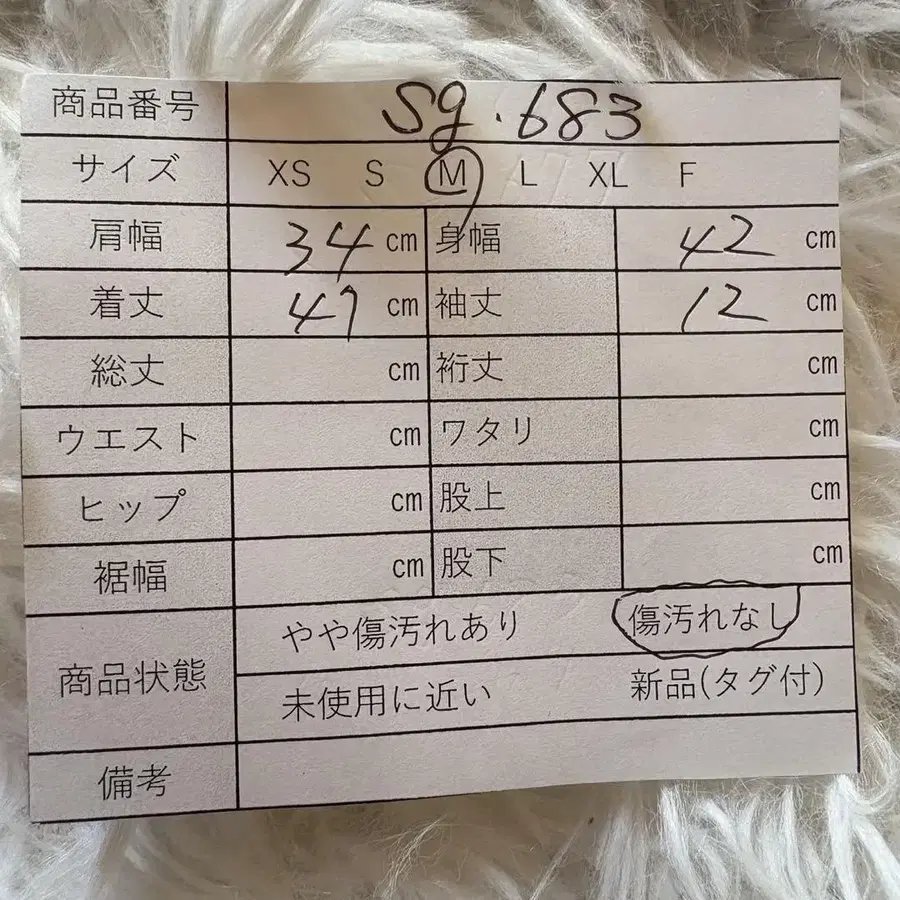 商品番号 sg.683
サイズ XS S M L XL F
肩幅 34 cm 身幅 42 cm
着丈 47 cm 袖丈 12 cm
総丈 cm 裄丈 cm
ウエスト cm ワタリ cm
ヒップ cm 股上 cm
裾幅 cm 股下 cm
商品状態 やや傷汚れあり 傷汚れなし
未使用に近い 新品(タグ付)
備考